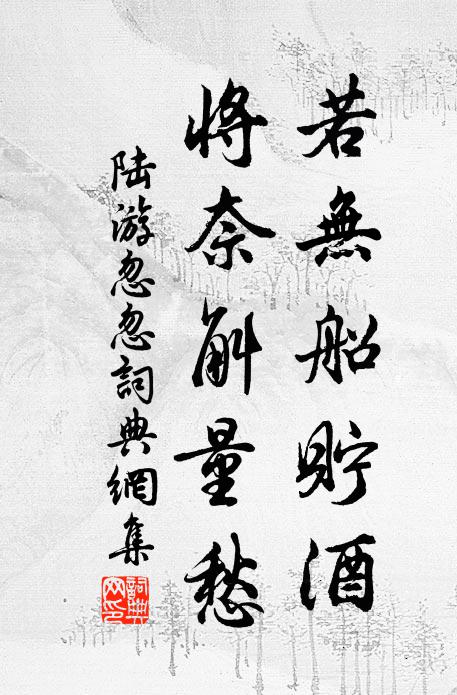 若無船貯酒
將奈斛量愁
陆游忽忽詞典網集